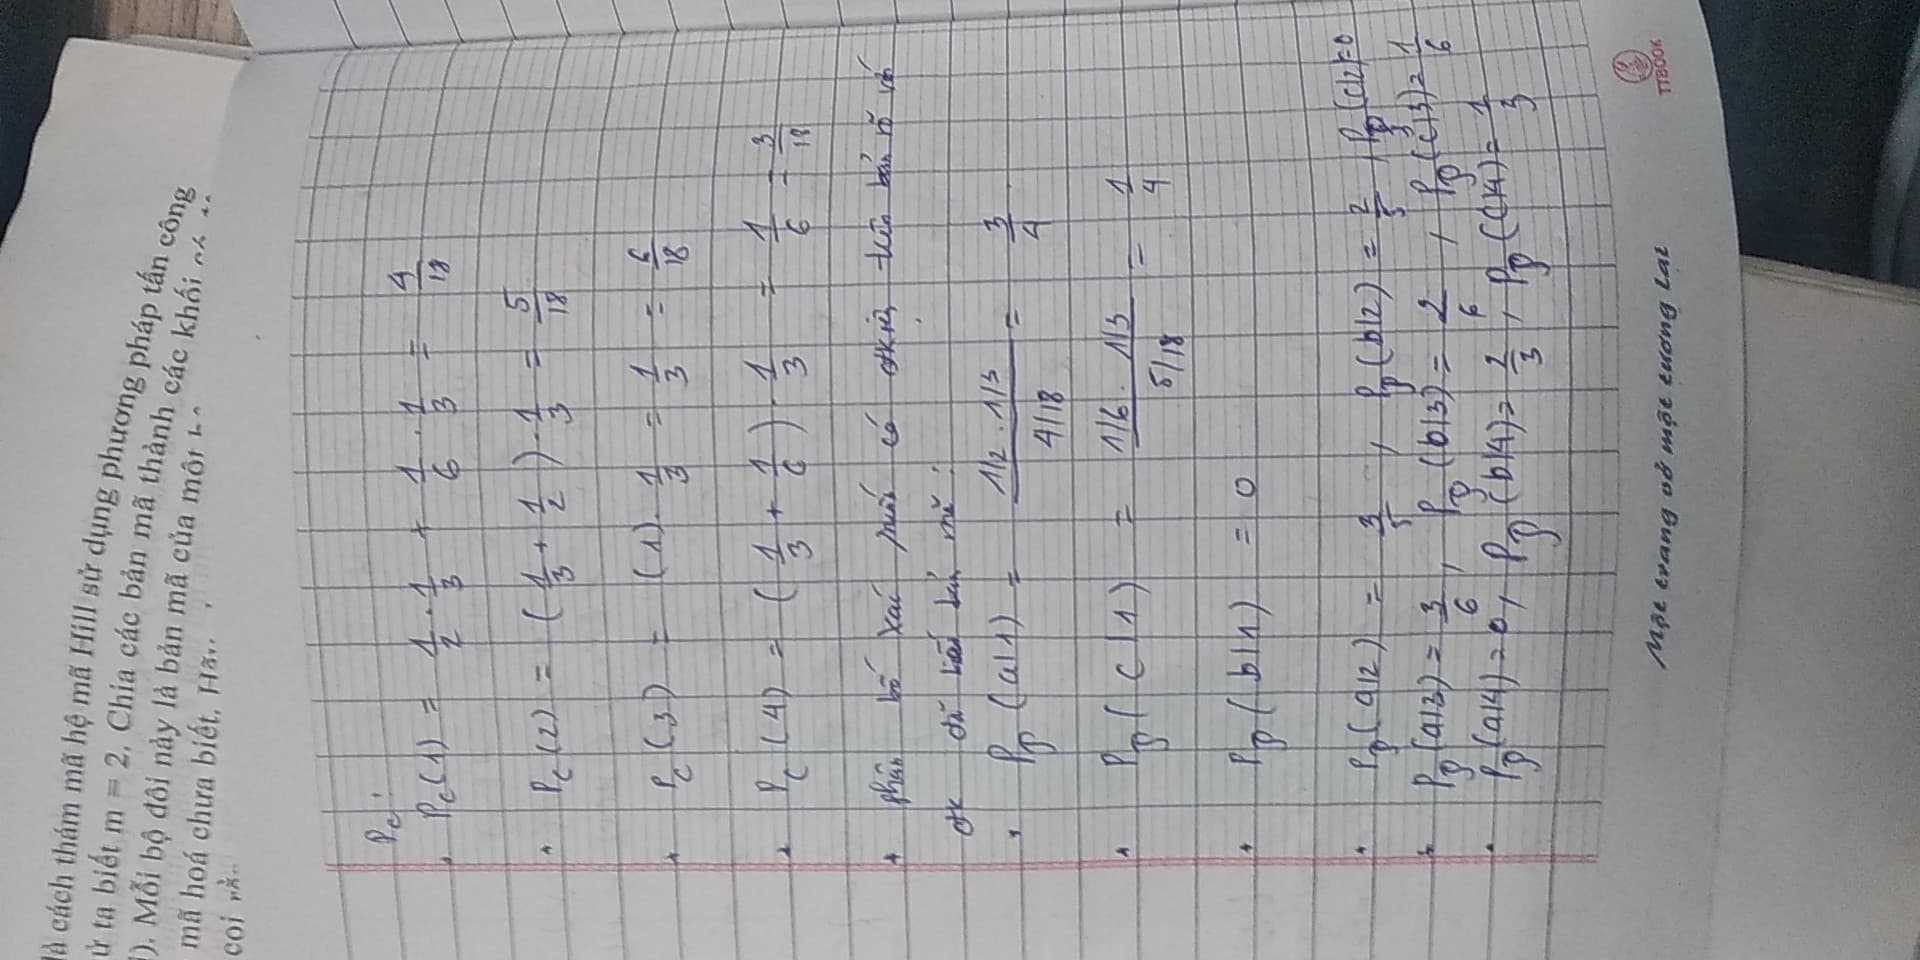 là cách thám mã hệ mã Hill sử dụng phương pháp tấn công
ử ta biết m = 2. Chia các bản mã thành các khối
i). Mỗi bộ đôi này là bản mã của một
mã hoá chưa biết. Hãy
coi
Pc:
Pc(1) = 1/2 . 1/3 + 1/6 . 1/3 = 4/18
Pc(2) = (1/3 + 1/2) . 1/3 = 5/18
Pc(3) = (1). 1/3 = 1/3 = 6/18
Pc(4) = (1/3 + 1/6) . 1/3 = 1/6 = 3/18
+ phân bố xác suất có đkiện trên bản rõ với
đk đã biết bản mã :
Pp(a|1) = 1/2 . 1/3 / 4/18 = 3/4
Pp(c|1) = 1/6 . 1/3 / 5/18 = 1/4
Pp(b|1) = 0
Pp(a|2) = 3/5 , Pp(b|2) = 2/5 , Pp(c|2)=0
Pp(a|3) = 3/6 , Pp(b|3) = 2/6 , Pp(c|3) = 1/6
Pp(a|4) = 0, Pp(b|4) = 2/3 , Pp(c|4) = 1/3
Một trang vở một tương lai
TTBOOK